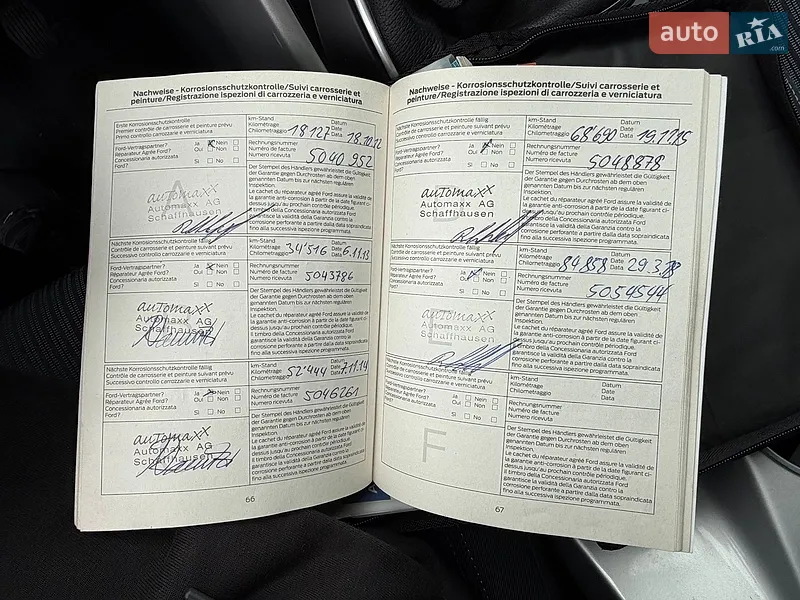 auto RIA .com
Nachweise - Korrosionsschutzkontrolle/Suivi carrosserie et
peinture/Registrazione ispezioni di carrozzeria e verniciatura
Erste Korrosionsschutzkontrolle
Premier contrôle de carrosserie et peinture
Primo controllo carrozzeria e verniciatura
km-Stand
Kilométrage
Chilometraggio 18127
Datum
Date
Data 18.10.12
Ford-Vertragspartner?
Réparateur Agréé Ford?
Concessionaria autorizzata
Ford?
Ja Nein
Oui Non
Si No
Rechnungsnummer
Numéro de facture
Numero ricevuta 5040 952
A
automaxx
Automaxx AG
Schaffhausen
Der Stempel des Händlers gewährleistet die Gültigkeit
der Garantie gegen Durchrosten ab dem oben
genannten Datum bis zur nächsten regulären
Inspektion.
Le cachet du réparateur agréé Ford assure la validité de
la garantie anti-corrosion à partir de la date figurant ci-
dessus jusqu'au prochain contrôle périodique.
Il timbro della Concessionaria autorizzata Ford
garantisce la validità della Garanzia contro la corrosione
perforante a partire dalla data sopraindicata
fino alla successiva ispezione programmata.
Nächste Korrosionsschutzkontrolle fällig
Contrôle de carrosserie et peinture suivant prévu
Successivo controllo carrozzeria e verniciatura
km-Stand
Kilométrage
Chilometraggio 34516
Datum
Date
Data 6.11.13
Ford-Vertragspartner?
Réparateur Agréé Ford?
Concessionaria autorizzata
Ford?
Ja Nein
Oui Non
Si No
Rechnungsnummer
Numéro de facture
Numero ricevuta 5043786
automaxx
Automaxx AG
Schaffhausen
Der Stempel des Händlers gewährleistet die Gültigkeit
der Garantie gegen Durchrosten ab dem oben
genannten Datum bis zur nächsten regulären
Inspektion.
Le cachet du réparateur agréé Ford assure la validité de
la garantie anti-corrosion à partir de la date figurant ci-
dessus jusqu'au prochain contrôle périodique.
Il timbro della Concessionaria autorizzata Ford
garantisce la validità della Garanzia contro la corrosione
perforante a partire dalla data sopraindicata
fino alla successiva ispezione programmata.
Nächste Korrosionsschutzkontrolle fällig
Contrôle de carrosserie et peinture suivant prévu
Successivo controllo carrozzeria e verniciatura
km-Stand
Kilométrage
Chilometraggio 52444
Datum
Date
Data 7.11.14
Ford-Vertragspartner?
Réparateur Agréé Ford?
Concessionaria autorizzata
Ford?
Ja Nein
Oui Non
Si No
Rechnungsnummer
Numéro de facture
Numero ricevuta 5046261
automaxx
Automaxx AG
Schaffhausen
Der Stempel des Händlers gewährleistet die Gültigkeit
der Garantie gegen Durchrosten ab dem oben
genannten Datum bis zur nächsten regulären
Inspektion.
Le cachet du réparateur agréé Ford assure la validité de
la garantie anti-corrosion à partir de la date figurant ci-
dessus jusqu'au prochain contrôle périodique.
Il timbro della Concessionaria autorizzata Ford
garantisce la validità della Garanzia contro la corrosione
perforante a partire dalla data sopraindicata
fino alla successiva ispezione programmata.
66
Nachweise - Korrosionsschutzkontrolle/Suivi carrosserie et
peinture/Registrazione ispezioni di carrozzeria e verniciatura
Nächste Korrosionsschutzkontrolle fällig
Contrôle de carrosserie et peinture suivant prévu
Successivo controllo carrozzeria e verniciatura
km-Stand
Kilométrage
Chilometraggio 68690
Datum
Date
Data 19.11.15
Ford-Vertragspartner?
Réparateur Agréé Ford?
Concessionaria autorizzata
Ford?
Ja Nein
Oui Non
Si No
Rechnungsnummer
Numéro de facture
Numero ricevuta 5048878
automaxx
Automaxx AG
Schaffhausen
Der Stempel des Händlers gewährleistet die Gültigkeit
der Garantie gegen Durchrosten ab dem oben
genannten Datum bis zur nächsten regulären
Inspektion.
Le cachet du réparateur agréé Ford assure la validité de
la garantie anti-corrosion à partir de la date figurant ci-
dessus jusqu'au prochain contrôle périodique.
Il timbro della Concessionaria autorizzata Ford
garantisce la validità della Garanzia contro la corrosione
perforante a partire dalla data sopraindicata
fino alla successiva ispezione programmata.
Nächste Korrosionsschutzkontrolle fällig
Contrôle de carrosserie et peinture suivant prévu
Successivo controllo carrozzeria e verniciatura
km-Stand
Kilométrage
Chilometraggio 84858
Datum
Date
Data 29.3.18
Ford-Vertragspartner?
Réparateur Agréé Ford?
Concessionaria autorizzata
Ford?
Ja Nein
Oui Non
Si No
Rechnungsnummer
Numéro de facture
Numero ricevuta 5054544
automaxx
Automaxx AG
Schaffhausen
Der Stempel des Händlers gewährleistet die Gültigkeit
der Garantie gegen Durchrosten ab dem oben
genannten Datum bis zur nächsten regulären
Inspektion.
Le cachet du réparateur agréé Ford assure la validité de
la garantie anti-corrosion à partir de la date figurant ci-
dessus jusqu'au prochain contrôle périodique.
Il timbro della Concessionaria autorizzata Ford
garantisce la validità della Garanzia contro la corrosione
perforante a partire dalla data sopraindicata
fino alla successiva ispezione programmata.
Nächste Korrosionsschutzkontrolle fällig
Contrôle de carrosserie et peinture suivant prévu
Successivo controllo carrozzeria e verniciatura
km-Stand
Kilométrage
Chilometraggio
Datum
Date
Data
Ford-Vertragspartner?
Réparateur Agréé Ford?
Concessionaria autorizzata
Ford?
Ja Nein
Oui Non
Si No
Rechnungsnummer
Numéro de facture
Numero ricevuta
F
Der Stempel des Händlers gewährleistet die Gültigkeit
der Garantie gegen Durchrosten ab dem oben
genannten Datum bis zur nächsten regulären
Inspektion.
Le cachet du réparateur agréé Ford assure la validité de
la garantie anti-corrosion à partir de la date figurant ci-
dessus jusqu'au prochain contrôle périodique.
Il timbro della Concessionaria autorizzata Ford
garantisce la validità della Garanzia contro la corrosione
perforante a partire dalla data sopraindicata
fino alla successiva ispezione programmata.
67